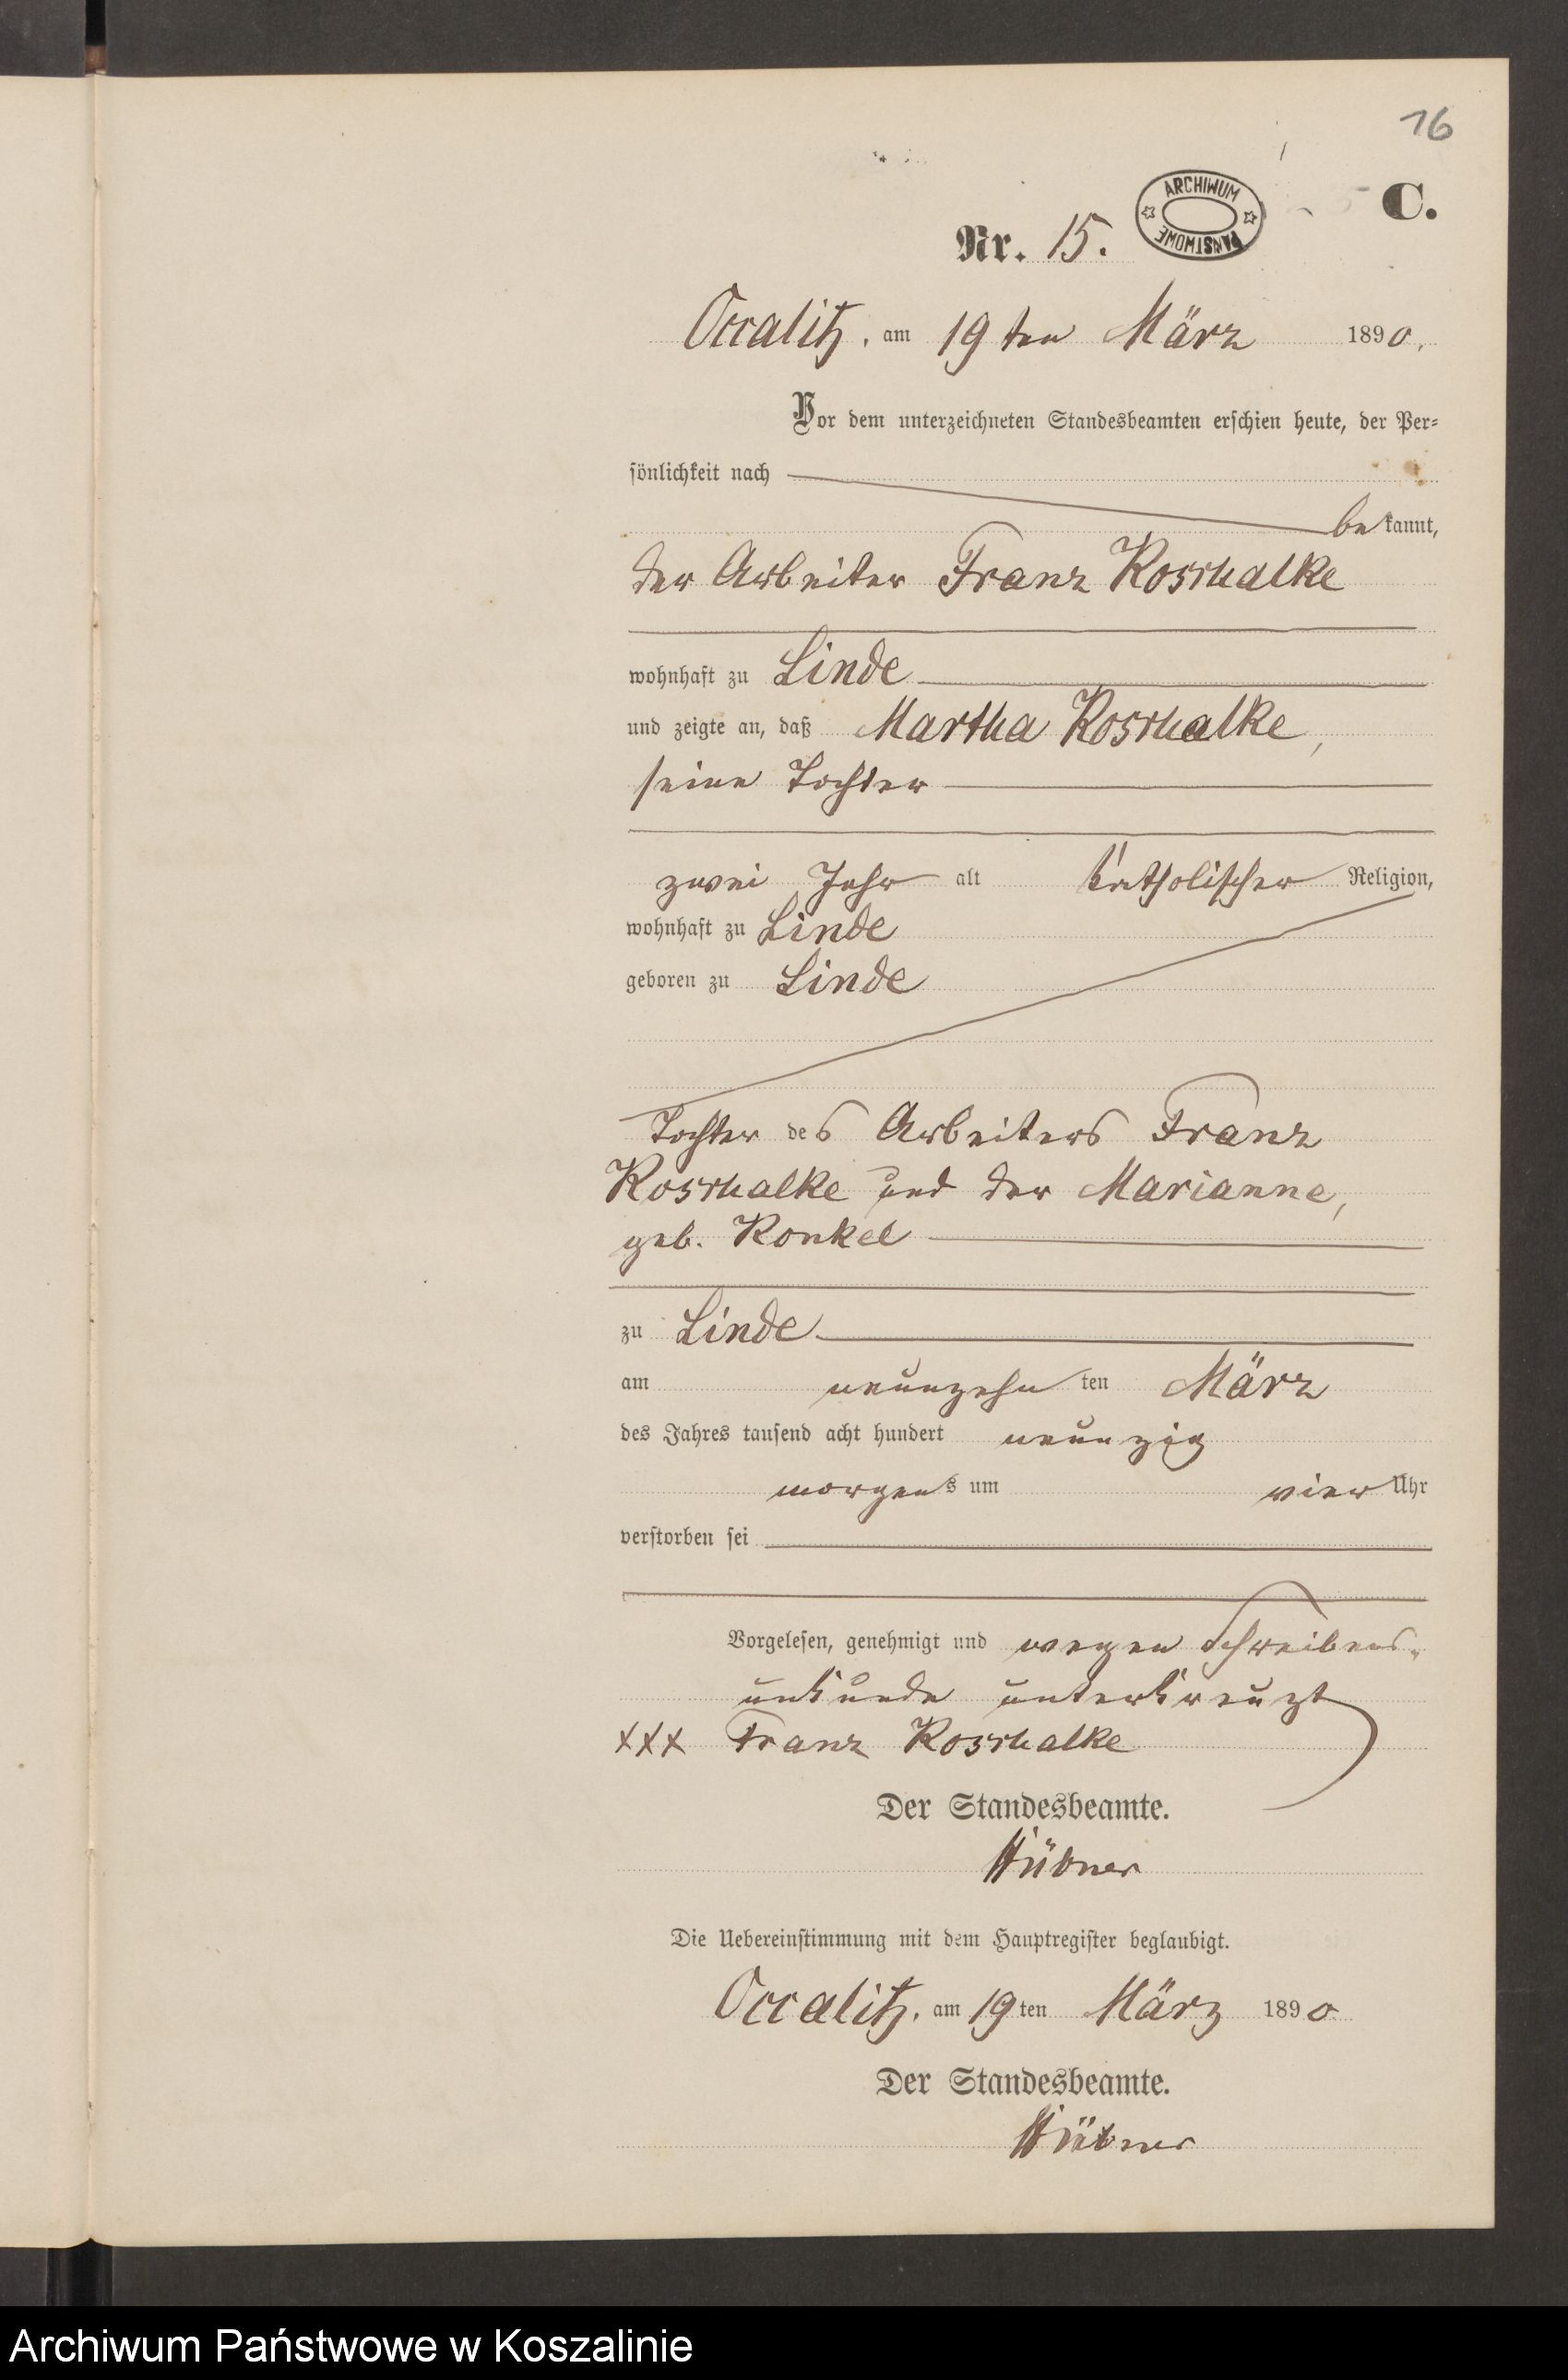 16
ARCHIWUM PAŃSTWOWE
C.
Nr. 15.
Occalitz, am 19ten März 1890.
Vor dem unterzeichneten Standesbeamten erschien heute, der Per-
sönlichkeit nach
bekannt,
der Arbeiter Franz Roschalke
wohnhaft zu Linde
und zeigte an, daß Martha Roschalke,
seine Tochter
zwei Jahr alt katholischer Religion,
wohnhaft zu Linde
geboren zu Linde
Tochter des Arbeiters Franz
Roschalke und der Marianne,
geb. Konkel
zu Linde
am neunzehnten März
des Jahres tausend acht hundert neunzig
morgens um vier Uhr
verstorben sei
Vorgelesen, genehmigt und wegen Schreibens-
unkunde unterkreuzt
XXX Franz Roschalke
Der Standesbeamte.
Hübner
Die Uebereinstimmung mit dem Hauptregister beglaubigt.
Occalitz, am 19ten März 1890
Der Standesbeamte.
Hübner
Archiwum Państwowe w Koszalinie